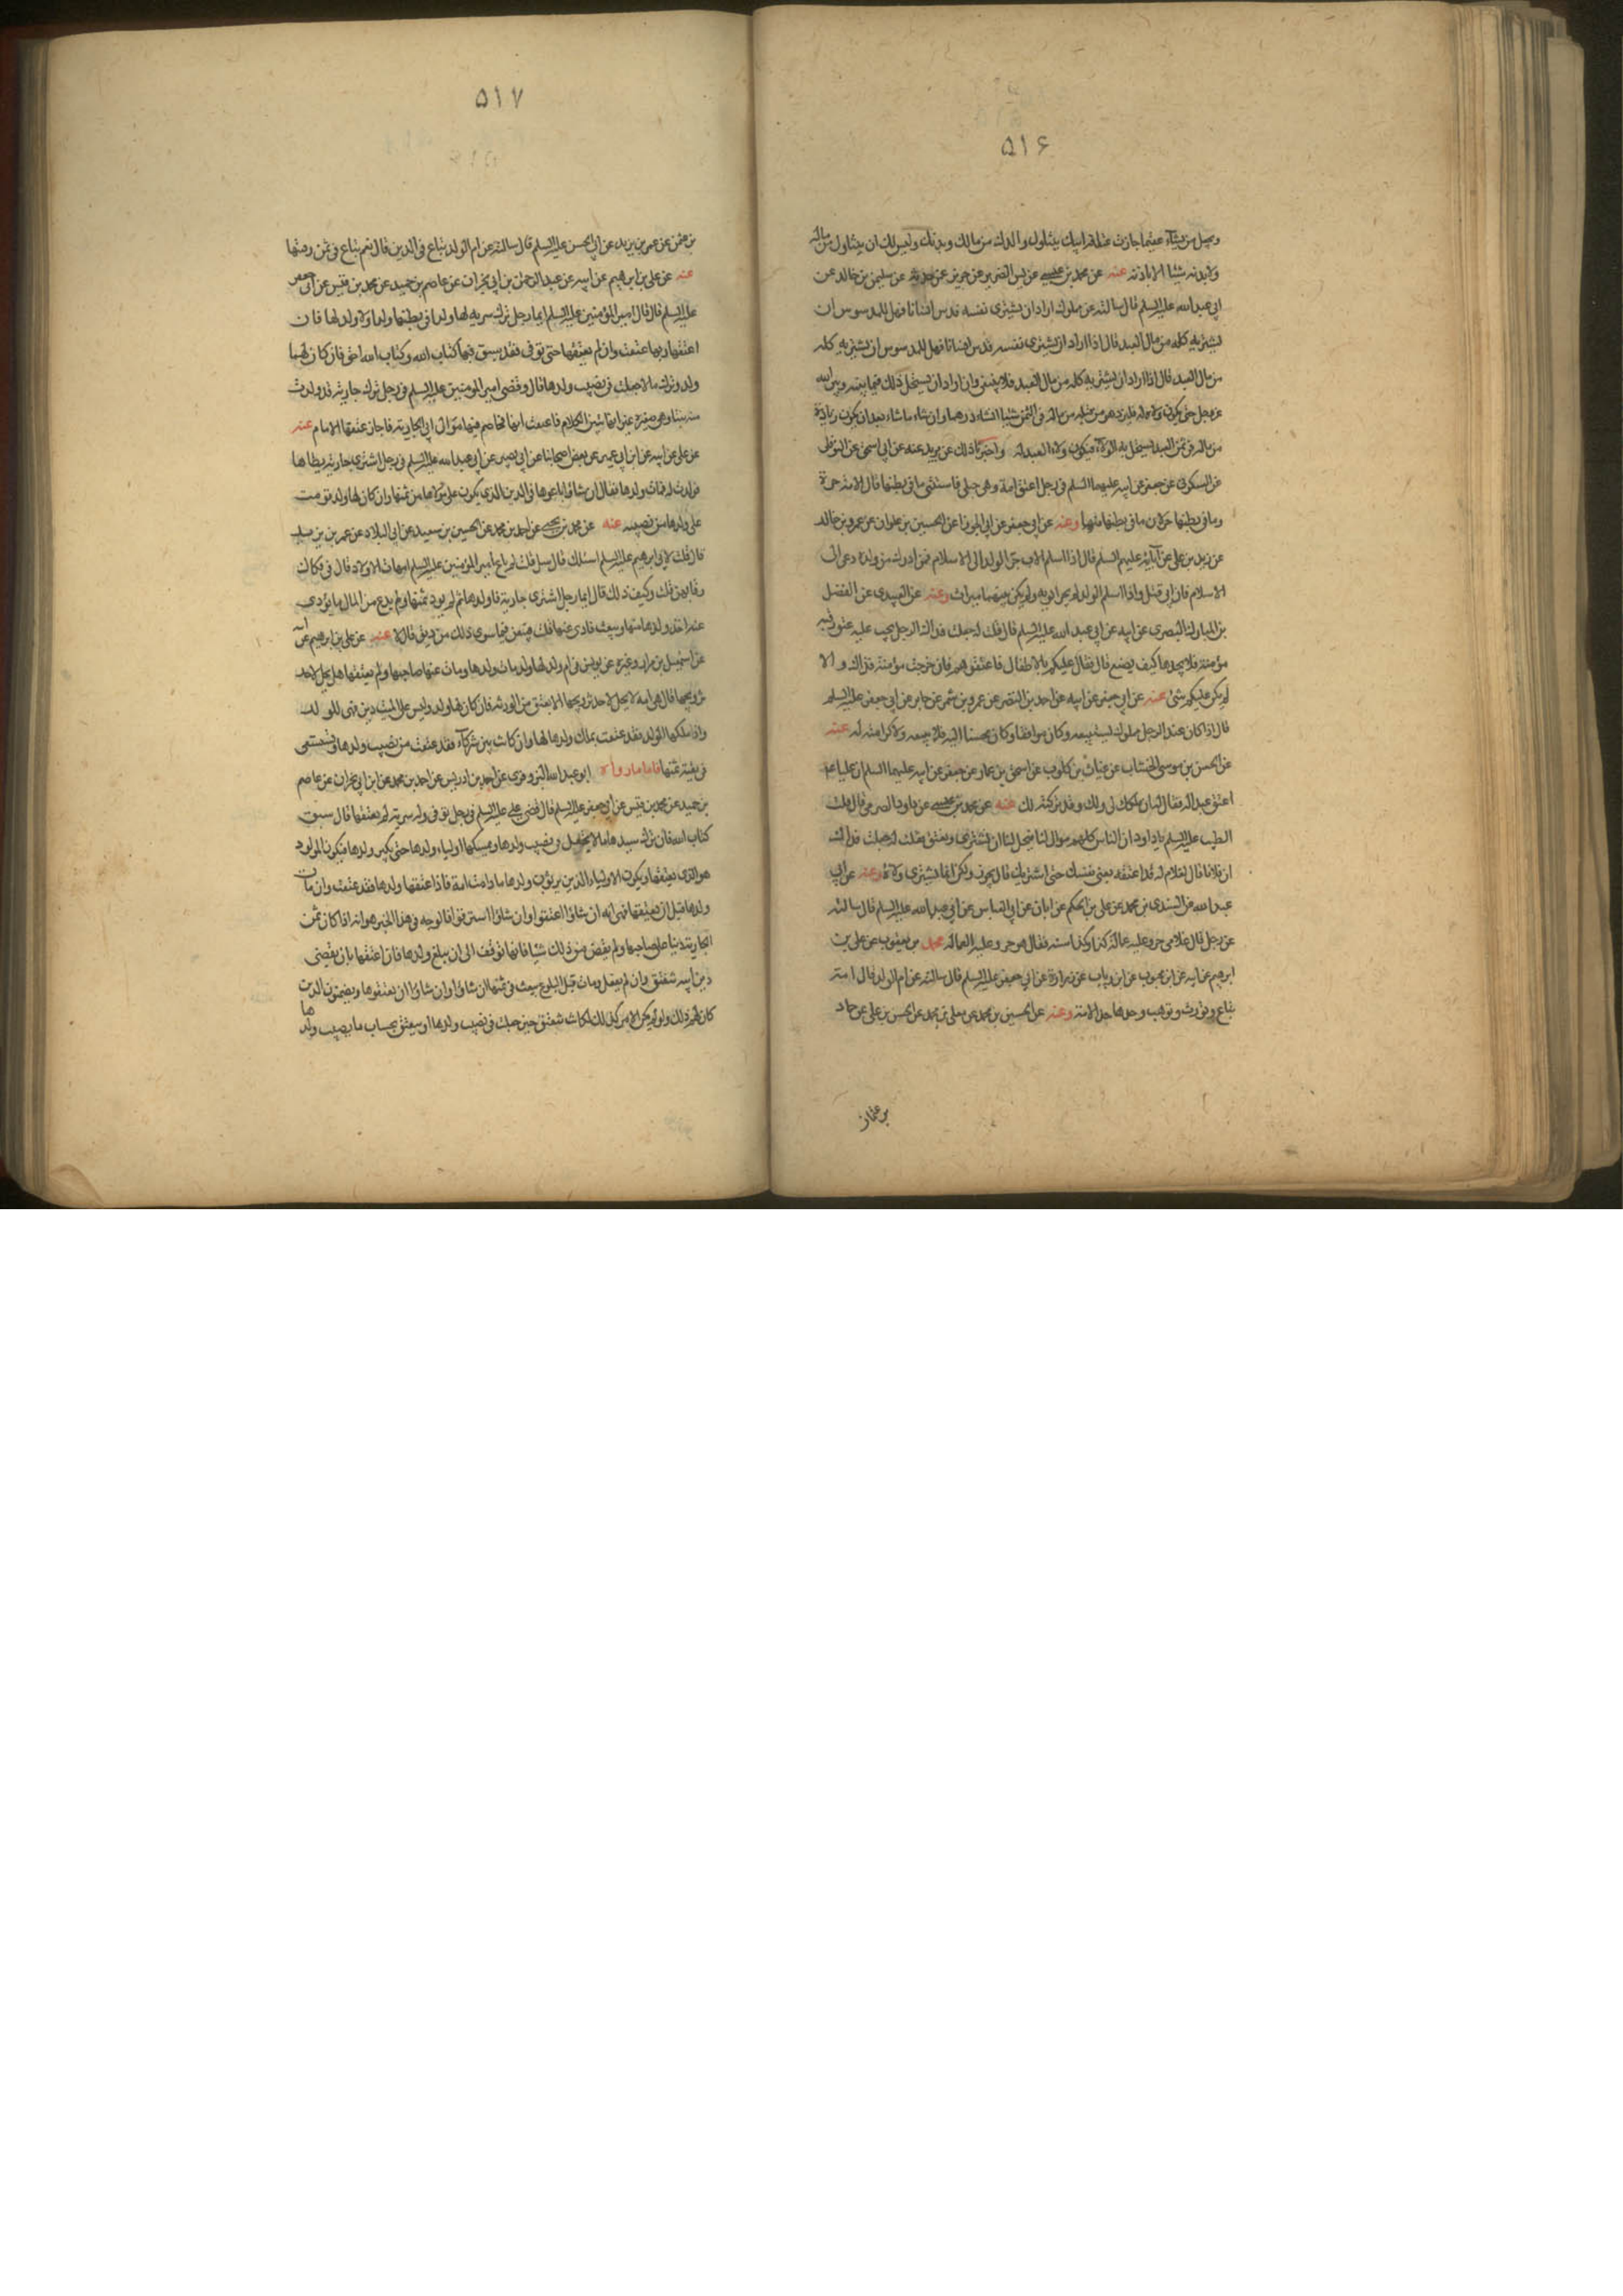 ۵۱۶
عتقها جازت عتقه لقرابتك يتناول والدك من مالك وبدنك وليس لك ان يتناول من ماله
ولا بدنه شيئا الا باذنه عنه عن محمد بن عيسى عن يس الضرير عن حريز عن سليمن بن خالد عن
ابي عبد الله عليه السلم قال سالته عن مملوك اراد ان يشترى نفسه فدس انسانا فهل للمدسوس ان
يشتريه كله من مال العبد قال اذا اراد ان يشترى نفسه فدس انسانا فهل للمدسوس ان يشتريه كله
من مال العبد قال اذا اراد ان يشتريه كله من مال العبد فلا ينبغى وان اراد ان يستحل ذلك فيما بينه وبين الله
عز وجل حتى يكون ولاءه له فليزد هو من قبله من ماله فى الثمن شيئا انشاء درهما وان شاء ما شاء بعد ان يكون زيادة
من ماله فى ثمن العبد يستحل به الولاء فيكون ولاء العبد له واخبرنا ذلك عن بريد عنه عن ابي اسحق عن النوفلى
عن السكونى عن جعفر عن ابيه عليهما السلم فى رجل اعتق امة وهى حبلى فاستثنى ما فى بطنها قال الامة حرة
وما فى بطنها حر لان ما فى بطنها منها وعنه عن ابي جعفر عن ابي الجوزا عن الحسين بن علوان عن عمرو بن خالد
عن زيد بن على عن آبائه عليهم السلم قال اذا اسلم الاب جر الولد الى الاسلام فمن ادرك من ولده دعى الى
الاسلام فان ابى قتل واذا اسلم الولد لم يجر ابويه ولم يكن بينهما ميراث وعنه عن السندى عن الفضل
بن المبارك البصرى عن ابيه عن ابي عبد الله عليه السلم قال قلت له جعلت فداك الرجل يجب عليه عتق رقبة
مؤمنة فلا يجدها كيف يصنع قال فقال عليكم بالاطفال فاعتقوهم فان خرجت مؤمنة فذاك والا
لم يكن عليكم شئ عنه عن ابي جعفر عن ابيه عن احمد بن النضر عن عمرو بن شمر عن جابر عن ابي جعفر عليه السلم
قال اذا كان عند الرجل مملوك ليشتريه وكان موافقا وكان محسنا اليه فلا يبيعه ولا كرامة له عنه
عن الحسن بن موسى الخشاب عن غياث بن كلوب عن اسحق بن عمار عن جعفر عن ابيه عليهما السلم ان عليا عم
اعتق عبدا له فقال له ان ملكك لى ولك وقد تركته لك عنه عن محمد بن عيسى عن داود الصرمى قال قال
الطيب عليه السلم يا داود ان الناس كلهم موال لنا فيحل لنا ان نشترى ونعتق فقلت له جعلت فداك
ان فلانا قال لغلام له قد اعتقه بعنى نفسك حتى اشتريك قال يجوز ولكن انما يشترى ولاءه وعنه عن ابي
عبد الله عن السندى بن محمد عن على بن الحكم عن ابان عن ابي العباس عن ابي عبد الله عليه السلم قال سالته
عن رجل قال غلامى حر وعليه عمالة كذا وكذا سنة فقال هو حر وعليه العمالة محمد بن يعقوب عن على بن
ابرهيم عن ابيه عن ابن محبوب عن ابن رياب عن زرارة عن ابي جعفر عليه السلم قال سالته عن ام الولد قال امة
تباع وتورث وتوهب وحدها حد الامة وعنه عن الحسين بن محمد عن معلى بن محمد عن الحسن بن على عن حماد
بن عثمان
۵۱۷
بن عثمن عن عمر بن يزيد عن ابي الحسن عليه السلم قال سالته عن ام الولد تباع فى الدين قال نعم تباع فى ثمن رقبتها
عنه عن على بن ابرهيم عن ابيه عن عبد الرحمن بن ابي نجران عن عاصم بن حميد عن محمد بن قيس عن ابي جعفر
عليه السلم قال قال امير المؤمنين عليه السلم ايما رجل ترك سرية لها ولد او فى بطنها ولد او لا ولد لها فان
اعتقها ربها عتقت وان لم يعتقها حتى توفى فقد سبق فيها كتاب الله وكتاب الله احق فان كان لها
ولد وترك مالا جعلت فى نصيب ولدها قال وقضى امير المومنين عليه السلم فى رجل ترك جارية قد ولدت
منه بنتا وهى صغيرة غير انها تبين الكلام فاعتقت امها فخاصم فيها موالى ابي الجارية فاجاز عتقها الامام عنه
عن على عن ابيه عن ابن ابي عمير عن بعض اصحابنا عن ابي بصير عن ابي عبد الله عليه السلم فى رجل اشترى جارية يطاها
فولدت له فمات ولدها فقال ان شاؤا باعوها فى الدين الذى يكون على مولاها من ثمنها وان كان لها ولد قومت
على ولدها من نصيبه عنه عن محمد بن يحيى عن احمد بن محمد عن الحسين بن سعيد عن ابي البلاد عن عمر بن يزيد
قال قلت لابي ابرهيم عليه السلم اسئلك قال سل قلت لم باع امير المؤمنين عليه السلم امهات الاولاد قال فى فكاك
رقابهن قلت وكيف ذلك قال ايما رجل اشترى جارية فاولدها ثم لم يود ثمنها ولم يدع من المال ما يؤدى
عنه اخذ ولدها منها وبيعت فادى عنها قلت فيبعن فيما سوى ذلك من دين قال لا عنه عن على بن ابرهيم عن ابيه
عن اسمعيل بن مرار وغيره عن يونس فى ام ولد لها ولد مات ولدها ومات عنها صاحبها ولم يعتقها هل يحل لاحد
تزويجها قال هى امة لا يحل لاحد تزويجها الا بعتق من الورثة فان كان لها ولد وليس على الميت دين فهى للولد
واذا ملكها الولد فقد عتقت بملك ولدها لها وان كانت بين شركاء فقد عتقت من نصيب ولدها وتستسعى
فى بقية ثمنها فاما ما رواه ابو عبد الله البزوفرى عن احمد بن ادريس عن احمد بن محمد عن ابن ابي نجران عن عاصم
بن حميد عن محمد بن قيس عن ابي جعفر عليه السلم قال قضى على عليه السلم فى رجل توفى وله سرية لم يعتقها قال سبق
كتاب الله فان ترك سيدها مالا تجعل فى نصيب ولدها ويمسكها اولياء ولدها حتى يكبر ولدها فيكون المولود
هو الذى يعتقها ويكون الاولياء الذين يرثون ولدها ما دامت امة فاذا اعتقها ولدها فقد عتقت وان مات
ولدها قبل ان يعتقها فهى امة ان شاؤا اعتقوا وان شاؤا استرقوا فالوجه فى هذا الخبر هو انه اذا كان ثمن
الجارية دينا على صاحبها ولم يقض من ذلك شيئا فانها توقف الى ان يبلغ ولدها فان اعتقها بان يقضى
دين ابيه تنعتق وان لم يفعل ومات قبل البلوغ بيعت فى ثمنها ان شاؤا وان شاؤا ان يعتقوها ويضمنون الدين
كان لهم ذلك ولو لم يكن الامر كذلك لكانت تنعتق حين جعلت فى نصيب ولدها او ينعتق بحساب ما يصيب ولدها